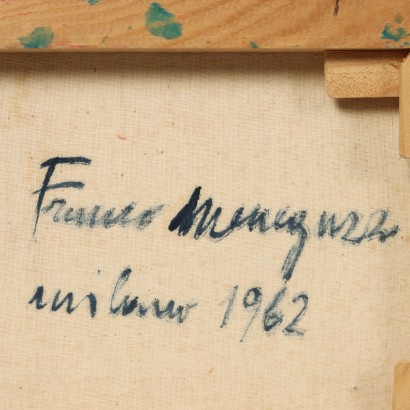 Franco Meneguzzo
milano 1962